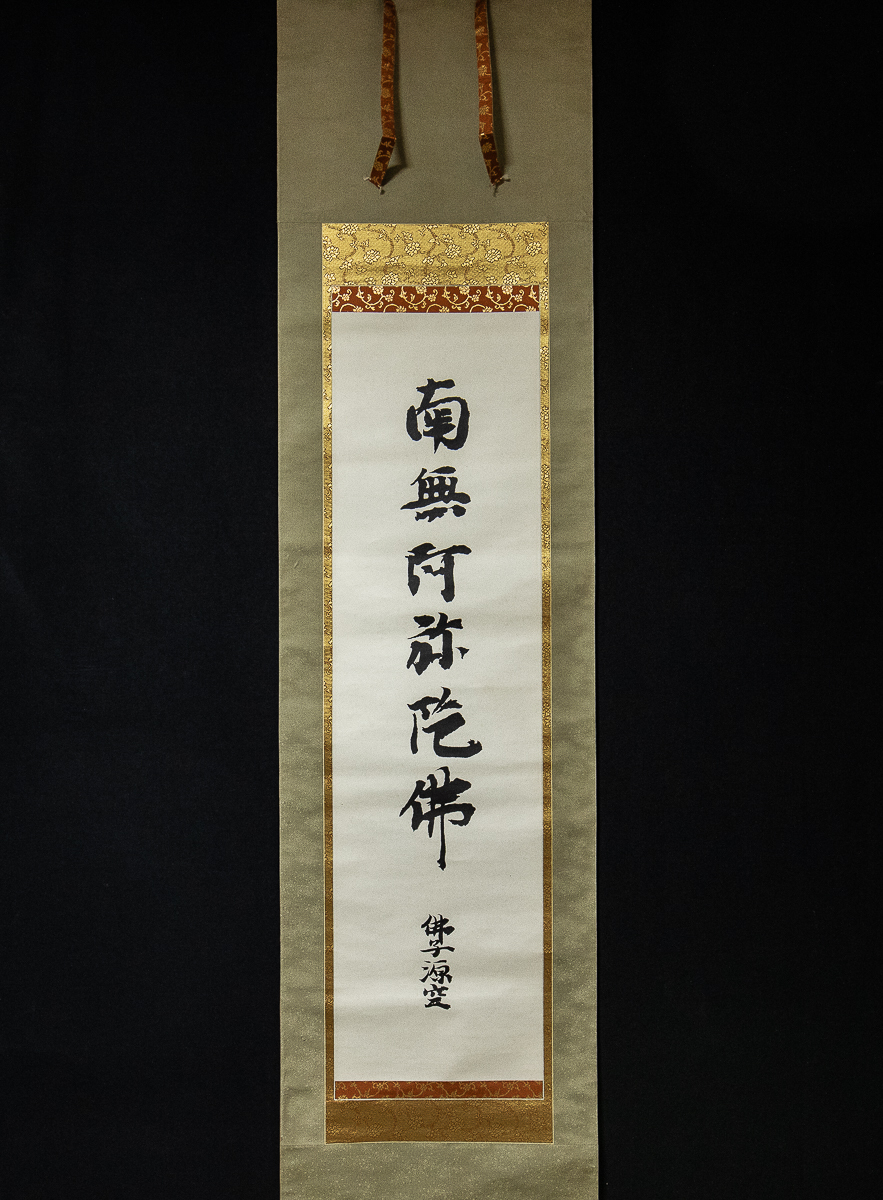 南無阿弥陀佛
佛子源空